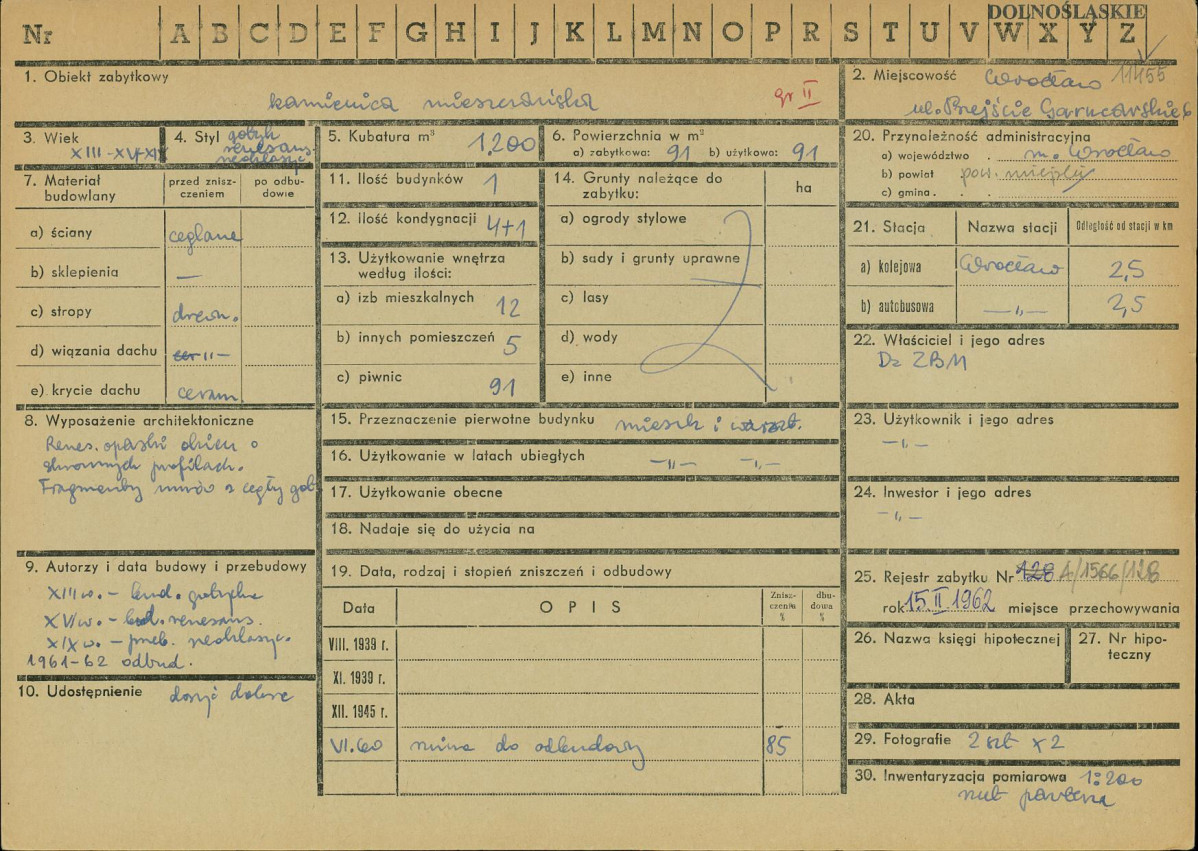 DOLNOŚLĄSKIE
Nr A B C D E F G H I J K L M N O P R S T U V W X Y Z
1. Obiekt zabytkowy
kamienica mieszczańska
gr II
2. Miejscowość Wrocław 11455
ul. Przejście Garncarskie 6
3. Wiek
XIII-XVI-XIX
4. Styl gotyk
renesans.
neoklasyc.
5. Kubatura m³ 1.200
6. Powierzchnia w m²
a) zabytkowa: 91 b) użytkowa: 91
20. Przynależność administracyjna
a) województwo . m. Wrocław
b) powiat pow. miejski
c) gmina .
7. Materiał budowlany
przed zniszczeniem
po odbudowie
a) ściany ceglane
b) sklepienia —
c) stropy drewn.
d) wiązania dachu -„-
e) krycie dachu ceram.
11. Ilość budynków 1
12. Ilość kondygnacji 4+1
13. Użytkowanie wnętrza
według ilości:
a) izb mieszkalnych 12
b) innych pomieszczeń 5
c) piwnic 91
14. Grunty należące do
zabytku:
ha
a) ogrody stylowe
b) sady i grunty uprawne
c) lasy
d) wody
e) inne
21. Stacja Nazwa stacji Odległość od stacji w km
a) kolejowa Wrocław 2,5
b) autobusowa —„— 2,5
22. Właściciel i jego adres
Dz ZBM
8. Wyposażenie architektoniczne
Renes. opaski okien o
skromnych profilach.
Fragmenty murów z cegły got.
15. Przeznaczenie pierwotne budynku mieszk i warszt.
16. Użytkowanie w latach ubiegłych —„— —„—
17. Użytkowanie obecne
18. Nadaje się do użycia na
23. Użytkownik i jego adres
—„—
24. Inwestor i jego adres
—„—
9. Autorzy i data budowy i przebudowy
XIII w. – bud. gotycka
XVI w. – bud. renesans.
XIX w. – przeb. neoklasyc.
1961-62 odbud.
10. Udostępnienie dosyć dobre
19. Data, rodzaj i stopień zniszczeń i odbudowy
Data OPIS Zniszczenia % dbudowa %
VIII. 1939 r.
XI. 1939 r.
XII. 1945 r.
VI.60 ruina do odbudowy 85
25. Rejestr zabytku Nr 128 A/1566/128
rok 15.II.1962 miejsce przechowywania
26. Nazwa księgi hipotecznej
27. Nr hipoteczny
28. Akta
29. Fotografie 2 szt x 2
30. Inwentaryzacja pomiarowa 1:200
rzut parteru